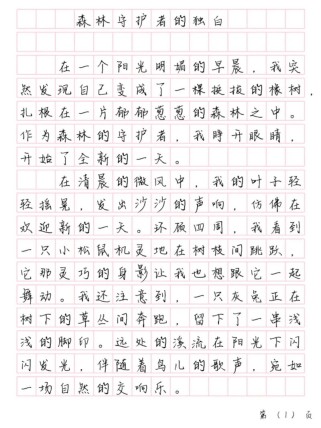 森林守护者的独白
在一个阳光明媚的早晨，我突
然发现自己变成了一棵挺拔的橡树，
扎根在一片郁郁葱葱的森林之中。
作为森林的守护者，我睁开眼睛，
开始了全新的一天。
在清晨的微风中，我的叶子轻
轻摇晃，发出沙沙的声响，仿佛在
欢迎新的一天。环顾四周，我看到
一只小松鼠机灵地在树枝间跳跃，
它那灵巧的身影让我也想跟它一起
舞动。我还注意到，一只灰兔正在
树下的草丛间奔跑，留下了一串浅
浅的脚印。远处的溪流在阳光下闪
闪发光，伴随着鸟儿的歌声，宛如
一场自然的交响乐。
第（1）页